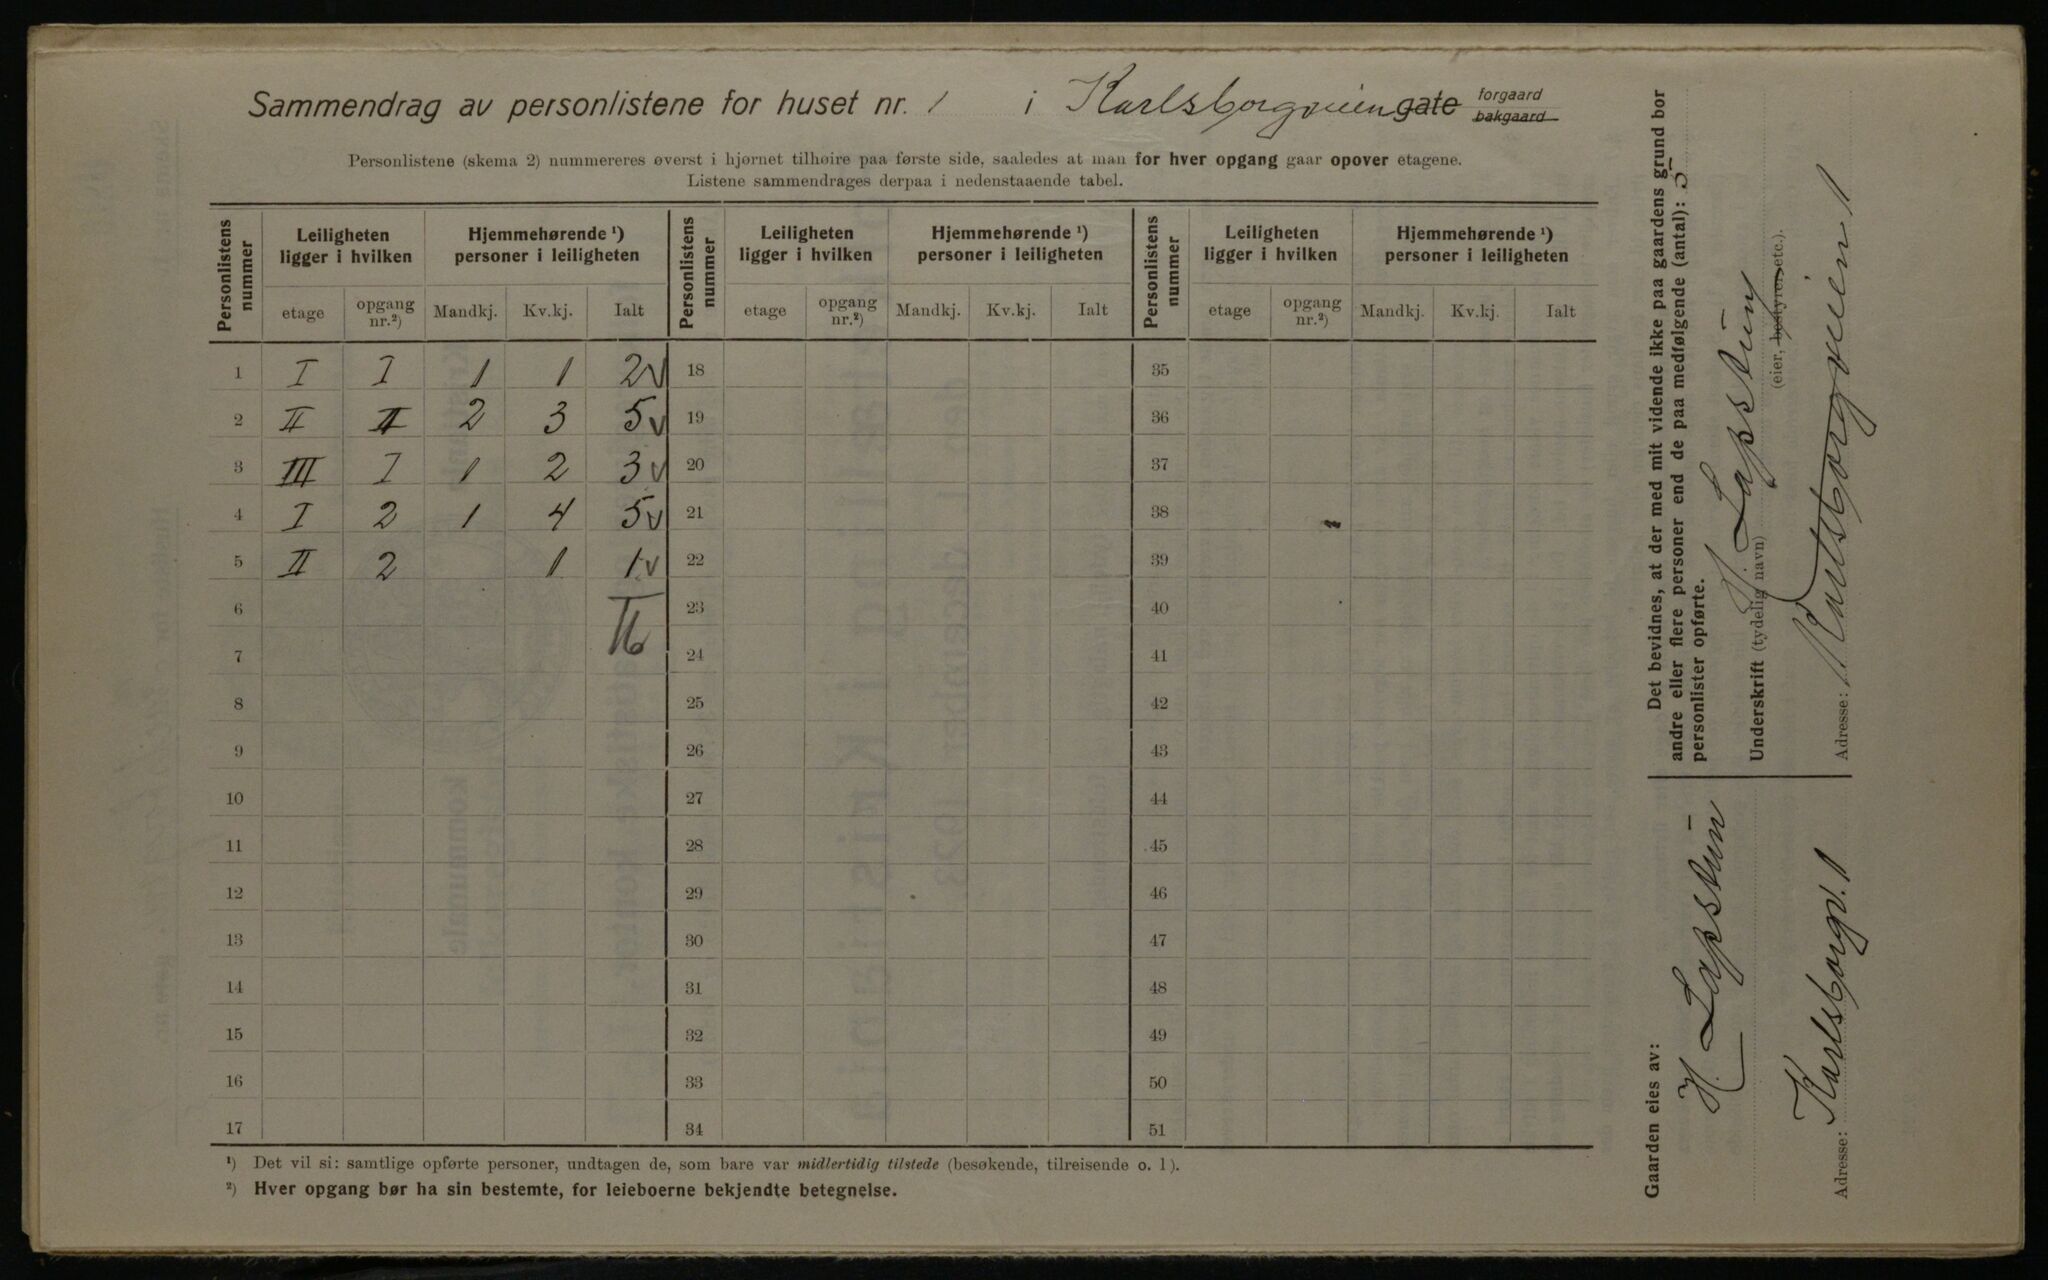 Sammendrag av personlistene for huset nr. 1 i Karlsborgveien gate forgaard
bakgaard
Personlistene (skema 2) nummereres øverst i hjørnet tilhøire paa første side, saaledes at man for hver opgang gaar opover etagene.
Listene sammendrages derpaa i nedenstaaende tabel.
Personlistens nummer | Leiligheten ligger i hvilken | Hjemmehørende ¹) personer i leiligheten | Personlistens nummer | Leiligheten ligger i hvilken | Hjemmehørende ¹) personer i leiligheten | Personlistens nummer | Leiligheten ligger i hvilken | Hjemmehørende ¹) personer i leiligheten
etage | opgang nr.²) | Mandkj. | Kv.kj. | Ialt | etage | opgang nr.²) | Mandkj. | Kv.kj. | Ialt | etage | opgang nr.²) | Mandkj. | Kv.kj. | Ialt
1 I I 1 1 2 v 18 35
2 II II 2 3 5 v 19 36
3 III I 1 2 3 v 20 37
4 I 2 1 4 5 v 21 38
5 II 2 1 1 v 22 39
6 16 23 40
7 24 41
8 25 42
9 26 43
10 27 44
11 28 45
12 29 46
13 30 47
14 31 48
15 32 49
16 33 50
17 34 51
¹) Det vil si: samtlige opførte personer, undtagen de, som bare var midlertidig tilstede (besøkende, tilreisende o. l).
²) Hver opgang bør ha sin bestemte, for leieboerne bekjendte betegnelse.
Det bevidnes, at der med mit vidende ikke paa gaardens grund bor
andre eller flere personer end de paa medfølgende (antal): 5
personlister opførte.
Underskrift (tydelig navn) H. Lapstün
(eier, bestyrer etc.).
Adresse: Karlsborgveien 1
Gaarden eies av:
H. Lapstün
Adresse: Karlsborgv. 1